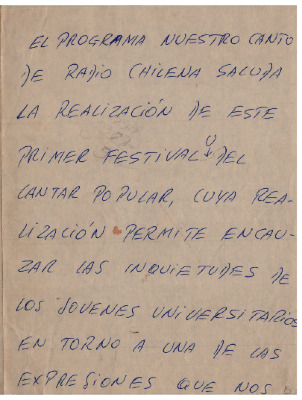 EL PROGRAMA NUESTRO CANTO
DE RADIO CHILENA SALUDA
LA REALIZACIÓN DE ESTE
PRIMER FESTIVAL U. DEL
CANTAR POPULAR, CUYA REA-
LIZACIÓN PERMITE ENCAU-
ZAR LAS INQUIETUDES DE
LOS JOVENES UNIVERSITARIOS
EN TORNO A UNA DE LAS
EXPRESIONES QUE NOS